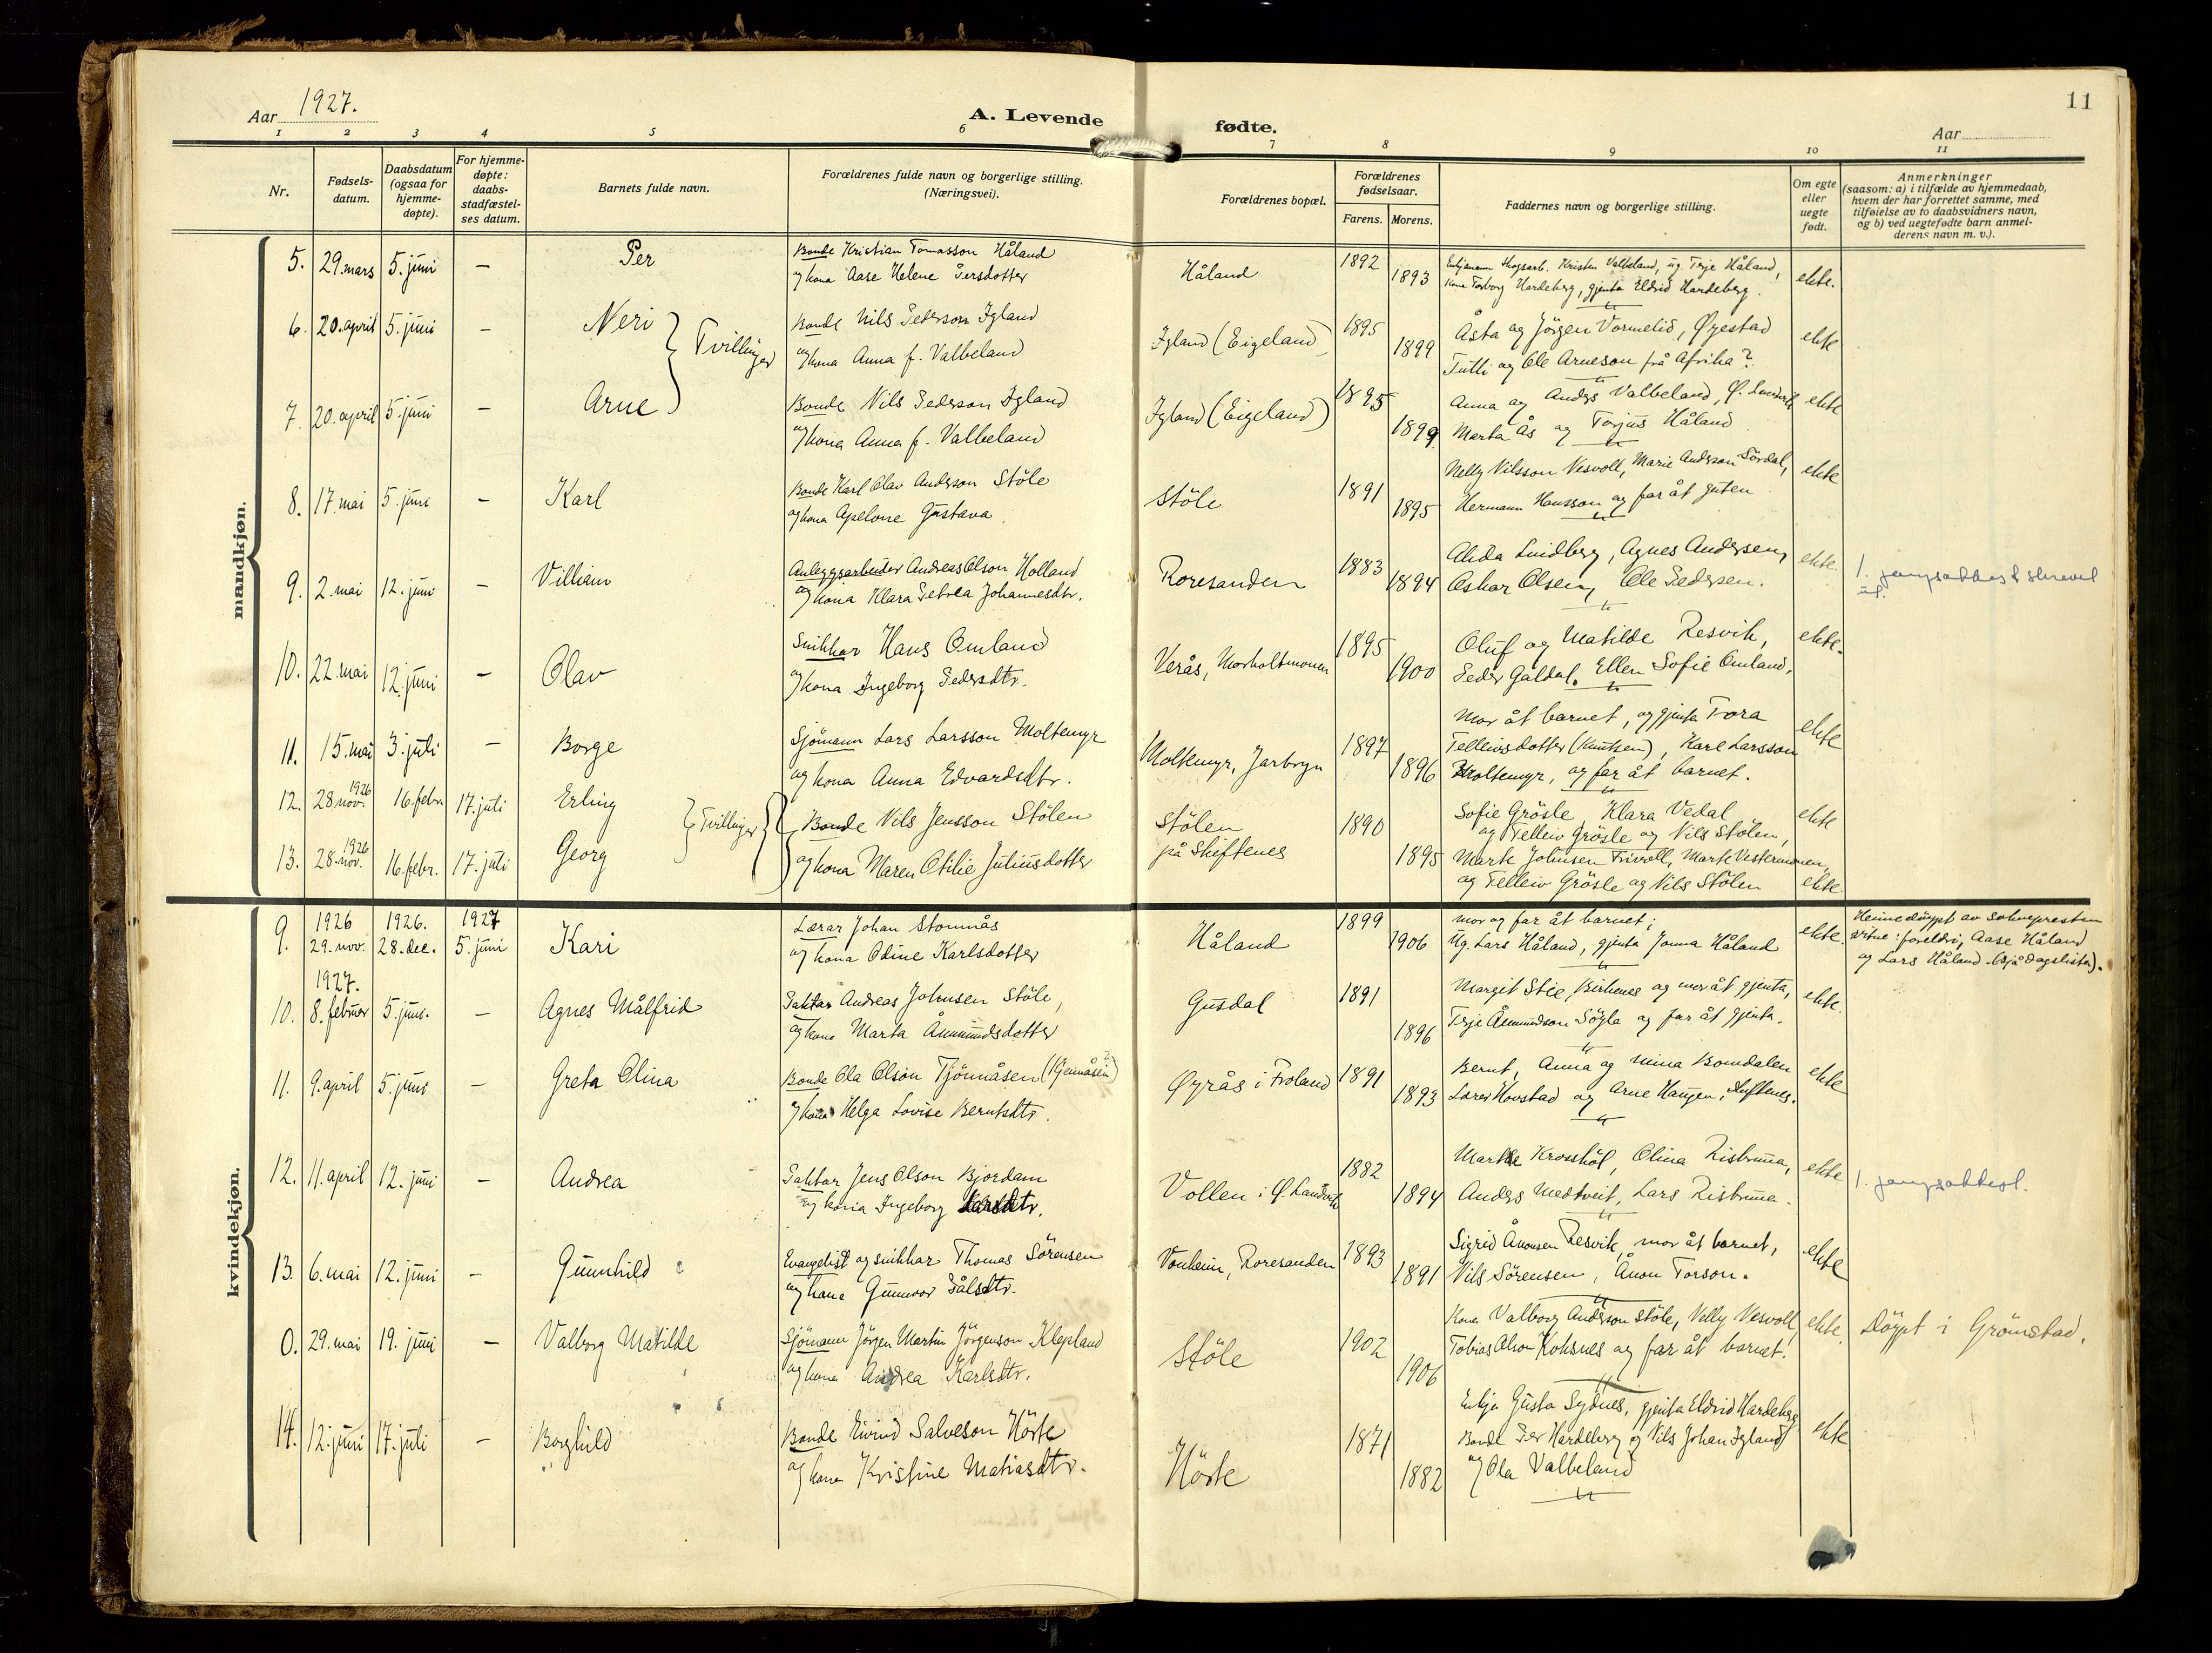 Aar 1927.
A. Levende fødte.
Aar
11
1 2 3 4 5 6 7 8 9 10 11
Nr.
Fødsels-
datum.
Daabsdatum
(ogsaa for
hjemme-
døpte).
For hjemme-
døpte:
daabs-
stadfæstel-
ses datum.
Barnets fulde navn.
Forældrenes fulde navn og borgerlige stilling.
(Næringsvei).
Forældrenes bopæl.
Forældrenes
fødselsaar.
Farens. Morens.
Faddernes navn og borgerlige stilling.
Om egte
eller
uegte
født.
Anmerkninger
(saasom: a) i tilfælde av hjemmedaab,
hvem der har forrettet samme, med
tilføielse av to daabsvidners navn,
og b) ved uegtefødte barn anmel-
derens navn m. v.).
mandkjøn.
5. 29. mars 5. juni — Per
Bonde Kristian Tomasson Håland
og kona Aase Helene Persdotter
Håland 1892 1893
Enkjemann Skogsarb. Kristen Valbeland, ug. Terje Håland,
Kona Torborg Hardeberg, gjenta Eldrid Hardeberg.
ekte.
6. 20. april 5. juni — Neri
Tvillinger
Bonde Nils Pederson Igland
og kona Anna f. Valbeland
Igland (Eigeland) 1895 1899
Åsta og Jörgen Vormelid, Øyestad
Tutti og Ole Arneson frå Afrika?
ekte
7. 20. april 5. juni — Arne
Bonde Nils Pederson Igland
og kona Anna f. Valbeland
Igland (Eigeland) 1895 1899
Anna og Anders Valbeland, Ø. Landvik
Marta Ås og Torjus Håland
ekte
8. 17. mai 5. juni — Karl
Bonde Karl Olav Anderson Stöle
og kona Apelone Gustava
Stöle 1891 1895
Nelly Nilsson Vesvoll, Marie Anderson Sördal,
Hermann Hansson og far åt guten
ekte
9. 2. mai 12. juni — Villiam
Anleggsarbeider Andreas Olson Holland
og kona Klara Petrea Johannesdtr.
Roresanden 1883 1894
Alida Lindberg, Agnes Andersen,
Oskar Olsen, Ole Pedersen.
ekte.
10. 22. mai 12. juni — Olav
Snikkar Hans Omland
og kona Ingeborg Pedersdtr.
Verås, Morholtmonen 1895 1900
Oluf og Matilde Resvik,
Peder Galdal. Ellen Sofie Omland.
ekte.
11. 15. mai 3. juli — Borge
Sjömann Lars Larsson Moltemyr
og kona Anna Edvardsdtr.
Moltemyr, Jarbryn 1897 1896
Mor åt barnet, og gjenta Tora
Telleivsdotter (Knutsen), Karl Larsson
Moltemyr, og far åt barnet.
ekte
12. 28. nov. 1926 16. febr. 17. juli Erling
Tvillinger
Bonde Nils Jensson Stölen
Stölen 1890
Sofie Grösle, Klara Vedal
og Telleiv Grösle og Nils Stölen,
ekte
13. 28. nov. 1926 16. febr. 17. juli Georg
og kona Maren Otilie Juliusdotter
på Skiftenes 1895
Marte Johnsen Trivoll, Marte Vestermonen,
og Telleiv Grösle og Nils Stölen
ekte.
kvindekjøn.
9. 1926 29. nov. 1926. 28. dec. 1927 5. juni Kari
Lærar Johan Stomnås
og kona Odine Karlsdotter
Håland 1899 1906
mor og far åt barnet;
Ug. Lars Håland, gjenta Jonna Håland
ekte.
Heimedöypt av Soknepresten
vitne: foreldri, Aase Håland
og Lars Håland. (Sjå dagslista).
1927.
10. 8. februar 5. juni. — Agnes Målfrid
Paktar Andreas Johnsen Stöle,
og kona Marta Åmundsdotter
Gusdal 1891 1896
Margit Stie, Birkenes og mor åt gjenta,
Terje Åmundson Søgla og far åt gjenta.
ekte.
11. 9. april 5. juni — Greta Olina
Bonde Ola Olson Tjönnåsen
og kona Helga Lovise Berntsdtr.
Øyrås i Froland 1891 1893
Bernt, Anna og Mina Bomdalen
Lærer Hovstad og Arne Haugen,
ekte
12. 11. april 12. juni — Andrea
Paktar Jens Olson Bjordam
og kona Ingeborg Larsdtr.
Vollen i Ø. Landvik 1882 1894
Marte Krosshöl, Olina Risbruna,
Anders Medtveit, Lars Risbruna.
ekte
13. 6. mai 12. juni — Gunnhild
Evangelist og snikkar Thomas Sörensen
og kona Gunnvor Pålsdtr.
Vonheim, Roresanden 1893 1891
Sigrid Ånonsen Resvik, mor åt barnet,
Nils Sörensen, Ånon Torson.
ekte
0. 29. mai 19. juni — Valborg Matilde
Sjömann Jörgen Martin Jörgenson Klepland
og kona Andrea Karlsdtr.
Stöle 1902 1906
Kona Valborg Anderson Stöle, Nelly Vesvoll,
Tobias Olson Koksnes og far åt barnet.
ekte.
Döypt i Grömstad.
14. 12. juni 17. juli — Borghild
Bonde Eivind Salveson Hörte
og kona Kristine Matiasdtr.
Hörte 1871 1882
Enkja Gusta Sydnes, gjenta Eldrid Hardeberg
Bonde Per Hardeberg og Nils Johan Igland
og Ola Valbeland
ekte